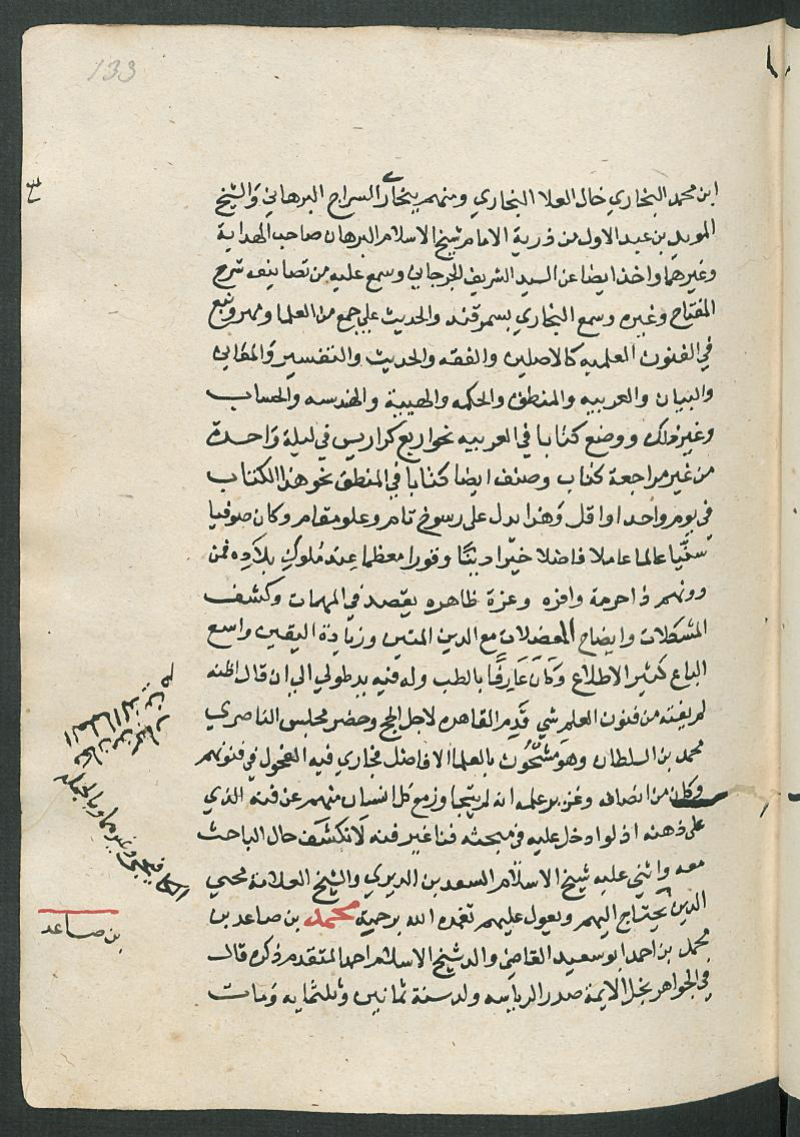 133
ابن محمد البخاري خال العلا البخاري ومنهم ببخارى السراج البرهاني والشيخ
المويد بن عبد الاول من ذرية الامام شيخ الاسلام البرهان صاحب الهداية
وغيرهما واخذ ايضا عن السيد الشريف الجرجاني وسمع عليه من تصانيفه شرح
المفتاح وغيره وسمع البخاري بسمرقند والحديث على جمع من العلما ومهر ونبع
في الفنون العلميه كالاصلين والفقه والحديث والتفسير والمعاني
والبيان والعربيه والمنطق والحكمه والهيية والهندسه والحساب
وغير ذلك ووضع كتابا في العربيه نحو اربع كراريس في ليلة واحدة
من غير مراجعة كتاب وصنف ايضا كتابا في المنطق نحو هذا الكتاب
في يوم واحد او اقل وهذا يدل على رسوخ تام وعلو مقام وكان صوفيا
سنيا عالما عاملا فاضلا خيرا دينا وقورا معظما عند ملوك بلاده فمن
دونهم ذا حرمة وافره وعزة ظاهره يقصد في المهمات وكشف
المشكلات وايضاح المعضلات مع الدين المتين وزيادة اليقين واسع
الباع كثير الاطلاع وكان عارفا بالطب وله فيه يد طولي الي ان قال اظنه
لم يفته من فنون العلم شي قدم القاهره لاجل الحج وحضر مجلس الناصري
محمد بن السلطان وهو مشحون بالعلما الافاضل فجاري فيه الفحول في فنونهم
وكان من انصافه وغزير علمه انه لم يتبجا وزمع كل انسان منهم عن فنه الذي
على ذهنه اذ لو ادخل عليه في مبحثه فنا غير فنه لانكشف حال الباحث
معه واثني عليه شيخ الاسلام السعد بن الديري والشيخ العلامة محيي
الدين يحتاج اليهم ويعول عليهم تغمده الله برحمته محمد بن صاعد بن
محمد بن احمد ابو سعيد القاضي والد شيخ الاسلام احمد المتقدم ذكره قال
في الجواهر نجل الايمة صدر الرياسه ولد سنة ثمانين وثلثمايه ومات
الكافيجي وغيرهما وبالجمله
بن صاعد